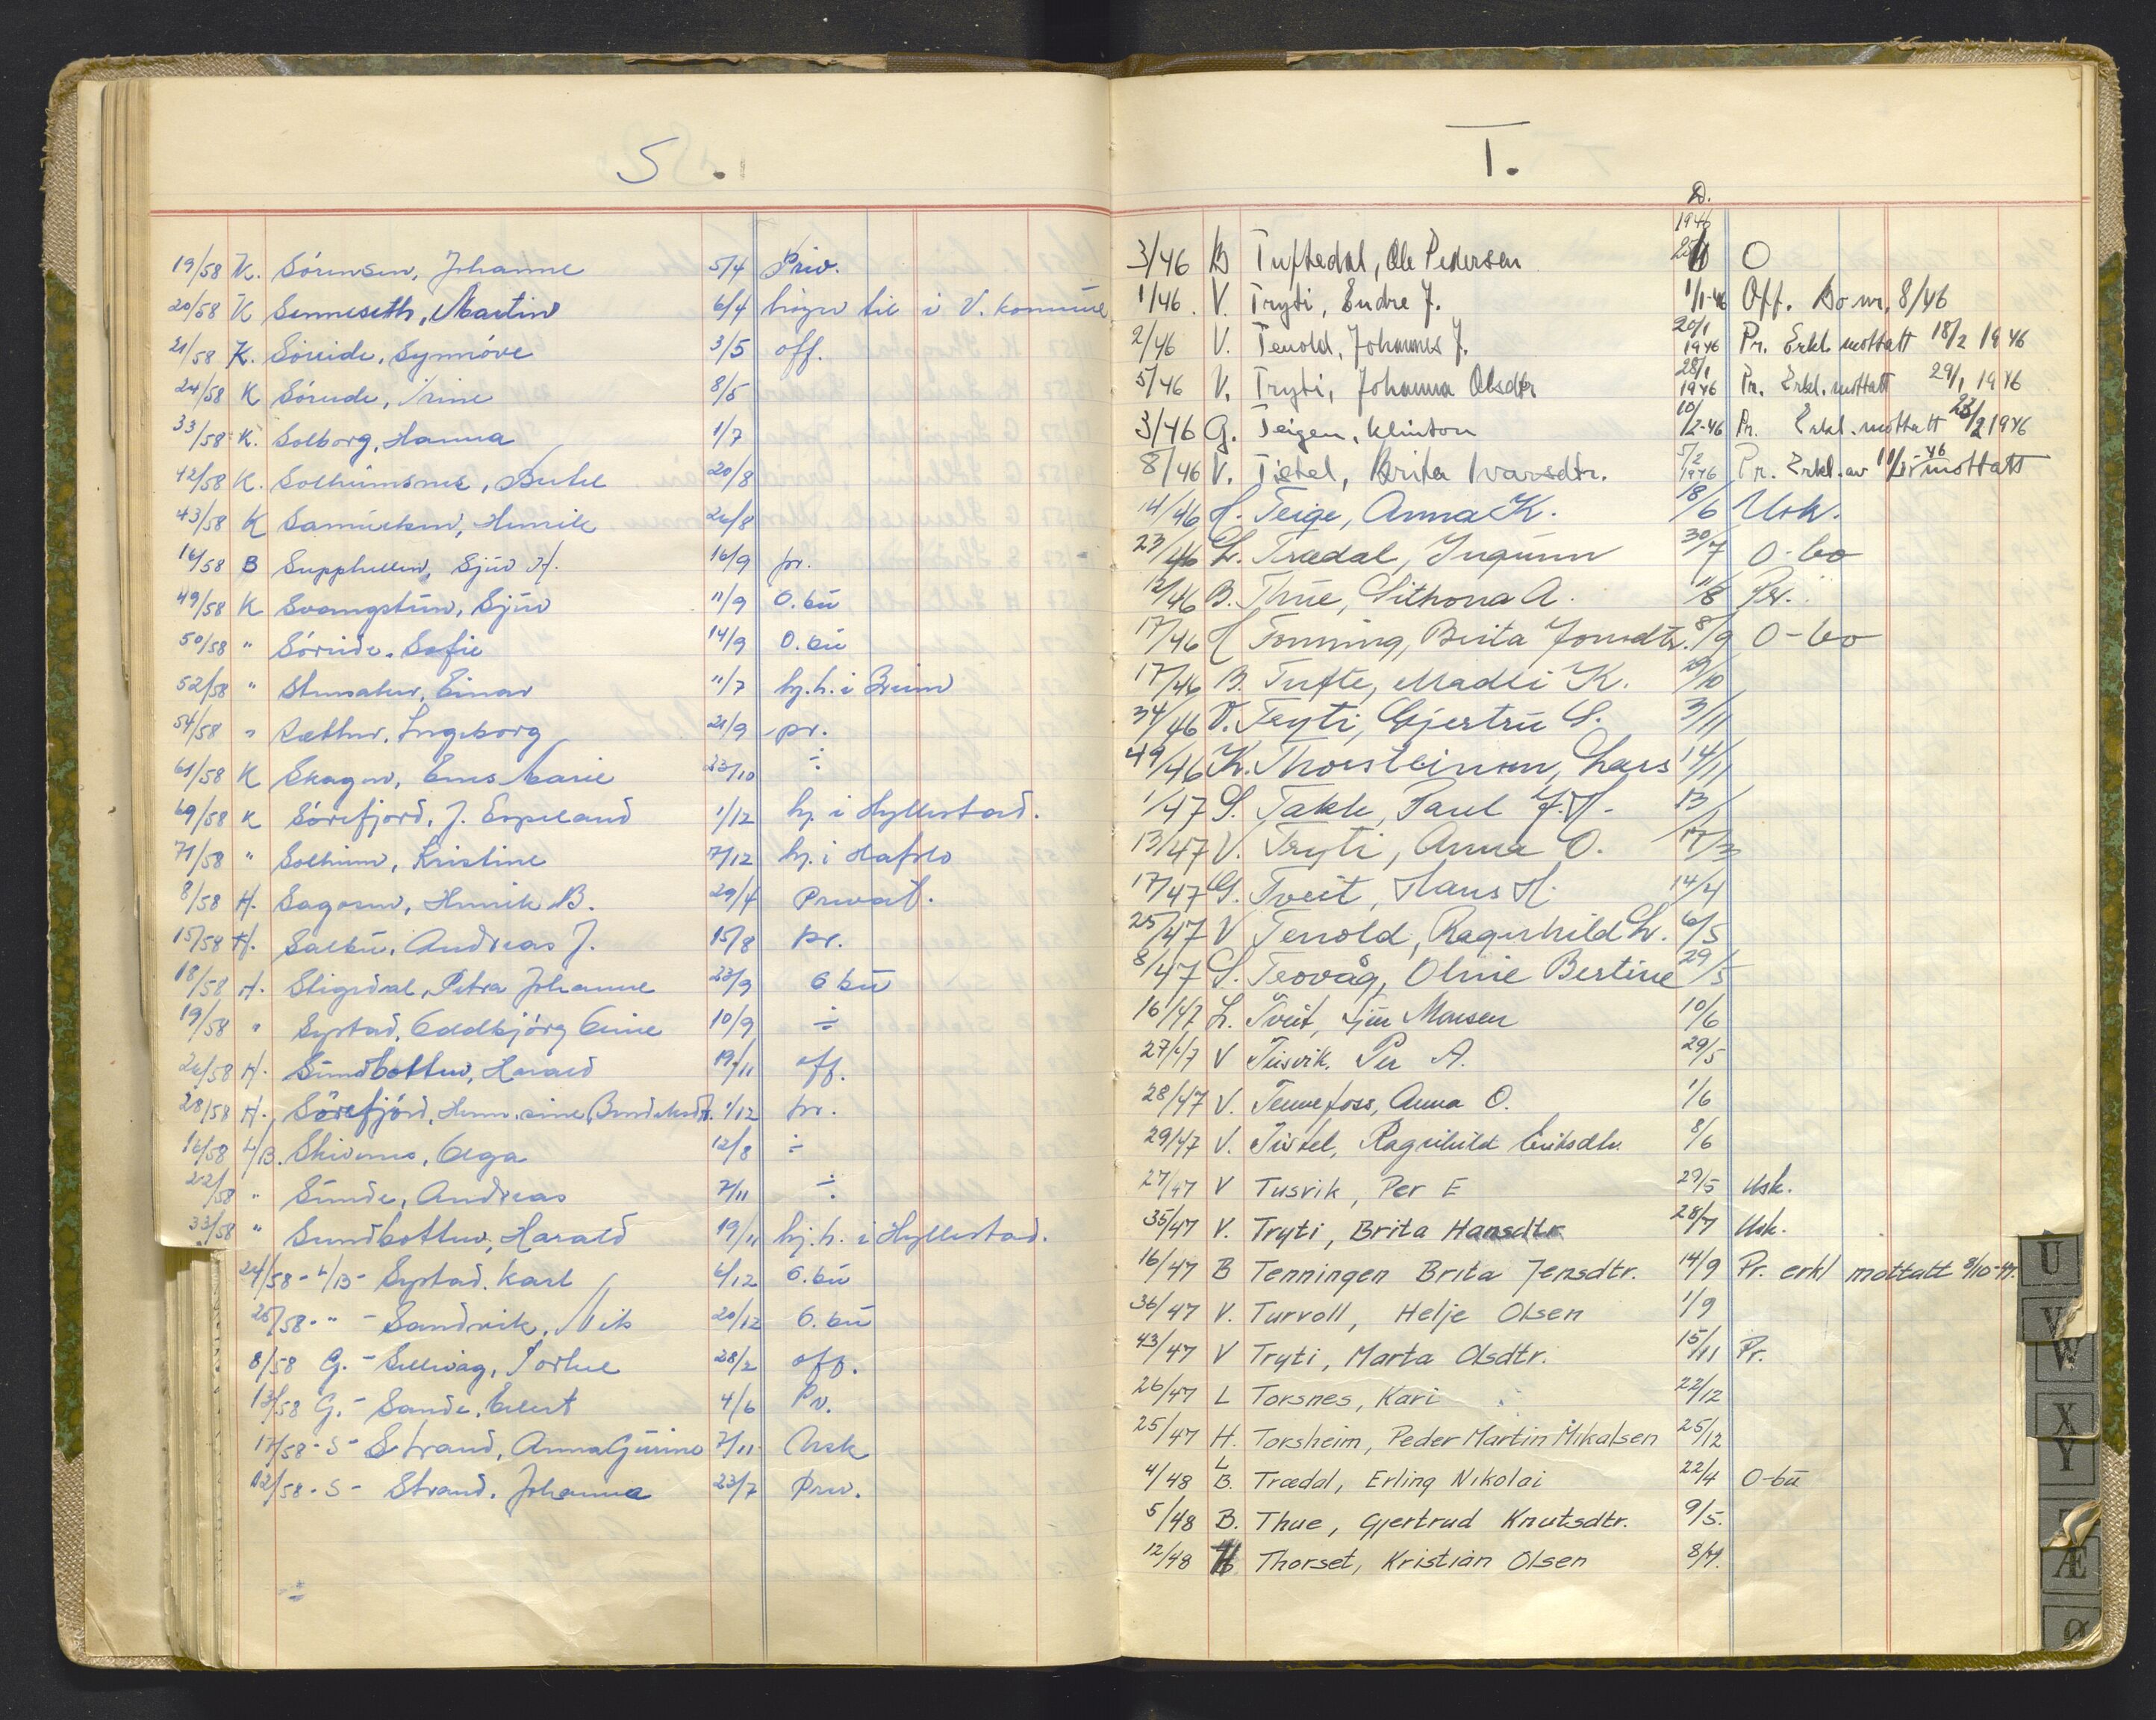 S.
19/58 K. Sörensen, Johanne 5/4 Priv.
20/58 K Senneseth, Martin 6/4 høyrer til i V. kommune
21/58 K. Söreide, Synnöve 3/5 off.
24/58 K Söreide, Trine 8/5
33/58 K. Solborg, Hanna 1/7
42/58 K. Solheimsnes, Buhel 20/8
43/58 K Samuelsen, Henrik 26/8
16/58 B Supphellen, Sjur H. 16/9 pr.
49/58 K Svangstun, Sjur 11/9 O.bu
50/58 " Söreide, Sofie 14/9 O.bu
52/58 " Stensæter, Einar 11/7 hj.h. i Breim
54/58 " Sætter, Ingeborg 21/9 pr.
61/58 K Skagen, Ems Marie 23/10 ÷
69/58 K Sörefjord, J. Espeland 1/12 hj. i Hyllestad.
71/58 " Solheim, Kristine 7/12 hj. i Hafslo
8/58 H. Sagosen, Henrik B. 29/4 Privat.
15/58 H. Salbu, Andreas J. 15/8 pr.
18/58 H. Stigedal, Petra Johanne 23/9 O bu
19/58 " Systad, Oddbjörg Eline 10/9 ÷
26/58 H. Sundbotten, Harald 19/11 off.
28/58 H. Sörefjord, 1/12 pr.
16/58 L/B. Skivenes, Olga 12/8 ÷
22/58 " Sunde, Andreas 7/11 ÷
33/58 " Sundbotten, Harald 19/11 hj.h. i Hyllestad.
24/58 - L/B - Systad, Karl 6/12 O.bu
26/58 - " - Sandvik, Nils 20/12 O.bu
8/58 G. - Sellevåg, Torkel 28/2 off.
13/58 G. - Sande, Eilert 4/6 Pr.
17/58 - S - Strand, Anna Gurine 7/11 Usk
12/58 - S - Strand, Johanna 23/7 Priv.
T.
D.
1946
3/46 B Tuftedal, Ole Pedersen O
1/46 V. Tryti, Endre J. 1/1-46 Off. Bo nr. 8/46
2/46 V. Tenold, Johannes J. 20/1 1946 Pr. Erkl. mottatt 18/2 1946
5/46 V. Tryti, Johanna Olsdtr 28/1 1946 Pr. Erkl. mottatt 29/1 1946
3/46 G. Teigen, Klinton 10/2-46 Pr. Erkl. mottatt 23/2 1946
8/46 V. Tistel, Brita Ivarsdtr. 5/2 1946 Pr. Erkl. av 11/3-46 mottatt
14/46 H. Teige, Anna K. 18/6 Usk.
23/46 L. Trædal, Ingunn 30/7 O-bo
12/46 B. Thue, Sithona A. 11/8 Pr.
17/46 H Tonning, Brita Jonsdtr. 8/9 O-bo
17/46 B. Tufte, Madli K. 29/10
34/46 V. Tryti, Gjertru S. 3/11
49/46 K. Thorsteinsen, Lars 14/11
1/47 S. Takle, Paul J. H. 13/1
13/47 V. Tryti, Anna O. 17/3
17/47 G. Tveit, Hans H. 14/4
25/47 V Tenold, Ragnhild L. 6/5
8/47 S. Trovåg, Oline Bertine 29/5
16/47 L. Tveit, Sjur Monsen 10/6
27/47 V Tusvik, Per A. 29/5
28/47 V. Tennefoss, Anna O. 1/6
29/47 V. Tistel, Ragnhild Eriksdtr. 8/6
27/47 V Tusvik, Per E 29/5 Usk.
35/47 V. Tryti, Brita Hansdtr 28/7 Usk.
16/47 B Tenningen Brita Jensdtr. 14/9 Pr. erkl mottatt 8/10-47.
36/47 V. Turvoll, Helje Olsen 1/9
43/47 V Tryti, Marta Olsdtr. 15/11 Pr.
26/47 L Torsnes, Kari 22/12
25/47 H. Torsheim, Peder Martin Mikalsen 25/12
4/48 L B. Trædal, Erling Nikolai 22/4 O-bu
5/48 B. Thue, Gjertrud Knutsdtr. 9/5.
12/48 H Thorset, Kristian Olsen 8/7.
U
V
W
X
Y
Æ
Ø